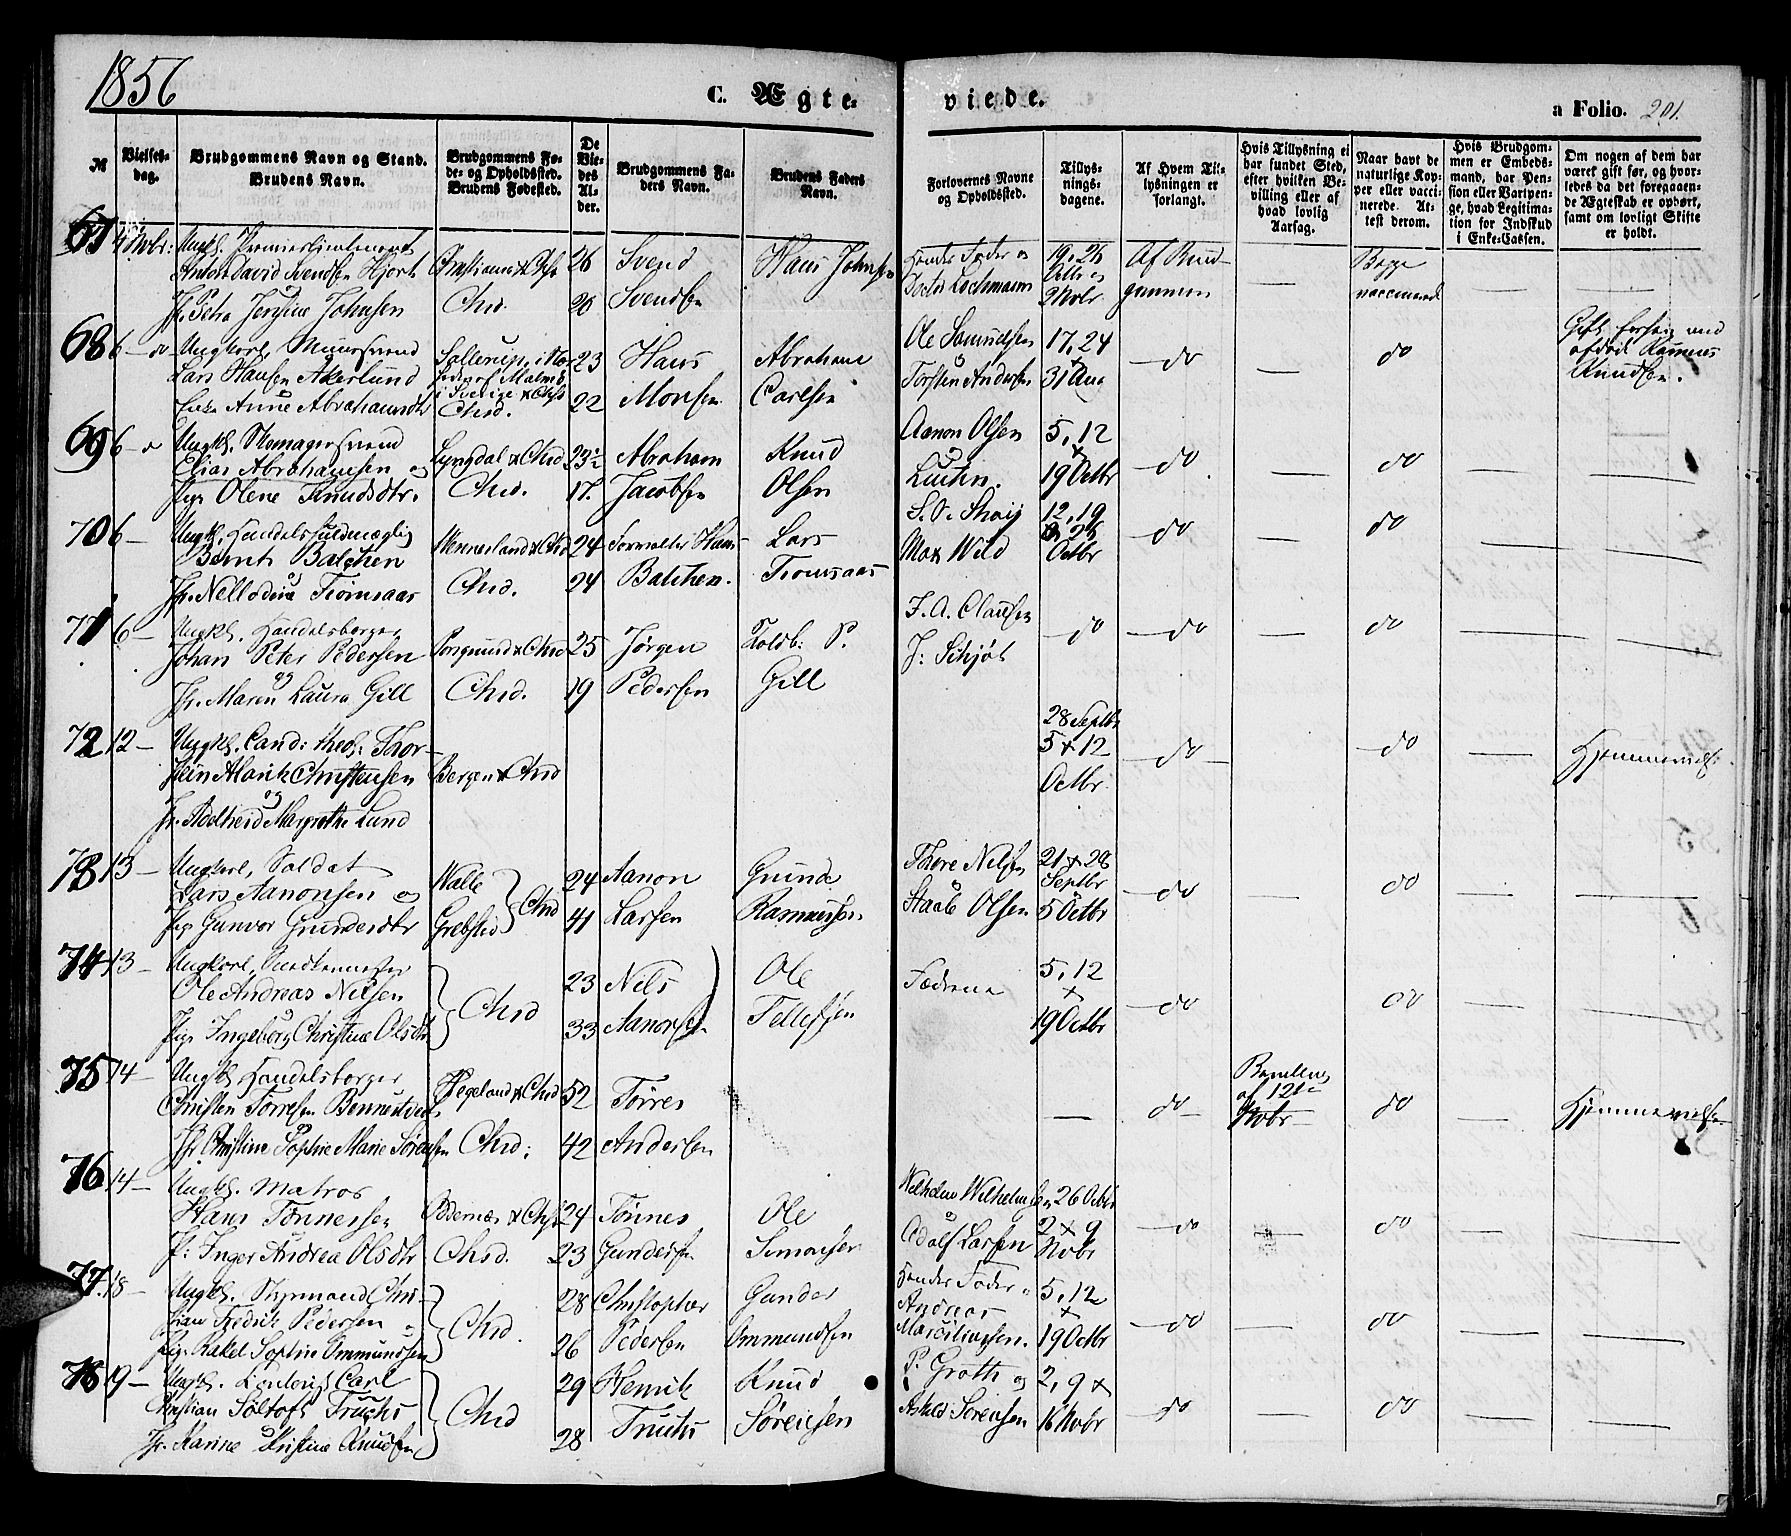 1856
C. Ægte-
viede.
a Folio. 201.
No
Vielses-
dag.
Brudgommens Navn og Stand.
Brudens Navn.
Brudgommens Fø-
de- og Opholdssted.
Brudens Fødested.
De
Vie-
des
Al-
der.
Brudgommens Fa-
ders Navn.
Brudens Faders
Navn.
Forlovernes Navne
og Opholdssted.
Tillys-
nings-
dagene.
Af Hvem Til-
lysningen er
forlangt.
Hvis Tillysning ei
har fundet Sted,
efter hvilken Be-
villing eller af
hvad lovlig
Aarsag.
Naar havt de
naturlige Kop-
per eller vacci-
nerede. At-
test derom.
Hvis Brudgom-
men er Embeds-
mand, har Pen-
sion eller Vartpen-
ge, hvad Legitima-
tion for Indskud
i Enke-Cassen.
Om nogen af dem har
været gift før, og hvor-
ledes da det foregaaen-
de Ægteskab er ophørt,
samt om lovligt Skifte
er holdt.
67 Novbr: Ungk. Premierlieutenant
Anton David Svendsen Hjorth 26 Svend Hans Johnsen
Jfr. Petra Jensine Johnsen Chsd. 20 Svendsen
Hendes Fader og 19, 26 Af Brud- Begge
Doctor Lochmann 2 Nobr gummen vaccinerede
68 6 - do Ungkarl, Muursvend 23 Hans Abraham
Lars Hansen Akerlund
Enke Anne Abrahamsdtr Chsd. 22 Monsen Carlsen
Ole Samuelsen 17, 24 do do Gift forhen med
Torsten Andersen 31 Aug afdød Rasmus
Knudsen.
69 6 - Ungk. Skomagersvend
Elias Abrahamsen og Lyngdal & Chsd 23½ Abraham Knud
Pige Olene Knudsdtr. Chsd. 17. Jacobsen Olsen
Aanon Olsen 5, 12
19 Octbr do do
70 6 - Ungk. Handelsfuldmægtig
Bernt Balchen Mennerland & Chsd 24 Forvalter Hans Lars
Jfr. Chsd. 24 Balchen. Tromsaas
12, 19
Max Wild Octbr do do
71 6 - Ungk. Handelsborger
Johan Peter Pedersen Porsgrund & Chsd 25 Jørgen Toldb: P.
og
Jfr. Maren Laura Gill Chsd. 19 Pedersen Gill
F. A. Clausen
J: Schjøt do do do
72 12 - Ungk. Cand: theol: Thor-
stein Alarik Christensen Bergen & Chsd
og
Jfr. Adelheid Margrethe Lund
28 Septbr
5 & 12
Octbr. do do Hjemmevielse
73 13 - Ungkarl, Soldat
Lars Aanonsen og Chsd 24 Aanon
Pige Gunvor Gundersdtr 41 Larsen Rasmussen
Thore Nilsen 21 & 28
Septbr
Staale Olsen 5 Octbr do do
74 13 - Ungkarl,
Ole Andreas Nilsen Chsd 23 Nils Ole
Pige Ingeborg Christine Olsdtr 33 Aanonsen Tellefsen
Fædrene 5, 12
&
19 Octbr do do
75 14 - Ungk. Handelsborger
Christen Torresen Hegeland & Chsd 52 Tørres
Jfr. Christine Sophie Marie Sørensen Chsd: 42 Andersen
do Bevilling
af 12te
Novbr do Hjemmevielse
76 14 - Ungk. Matros
Hans Tønnessen 24 Tønnes Ole
P: Inger Andrea Olsdtr Chsd. 23 Gundersen Simonsen
Wilhelm Wilhelmsen 26 Octbr
2 & 9
Adolf Larsen Nobr do do
77. 18 - Ungk. Styrmand Chri-
stian Fredrik Pedersen Chsd. 28 Christopher Gunder
Pige Rakel Sophie Ommundsen 26 Pedersen Ommundsen
Hendes Fader 5, 12
Andreas &
Marciliussen. 19 Octbr do do
78 19 - Ungk. Contorist Carl
Christian Søltoft Fruchs Chsd 29 Henrik Knud
Jfr. Karine Kristine Knudsen 28 Fruchs Sørensen
P. Groth og 2, 9 &
Sørensen 16 Nobr do do